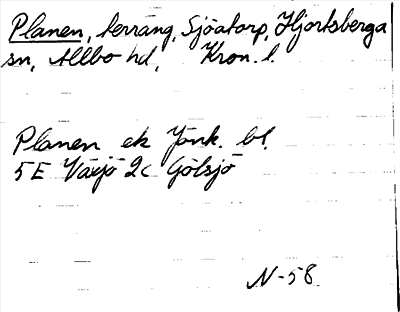 Planen, terräng, Sjöatorp, Hjortsberga
sn, Allbo hd, Kron. l.
Planen ek Jönk. bl.
5E Växjö 2c Götsjö
N-58.